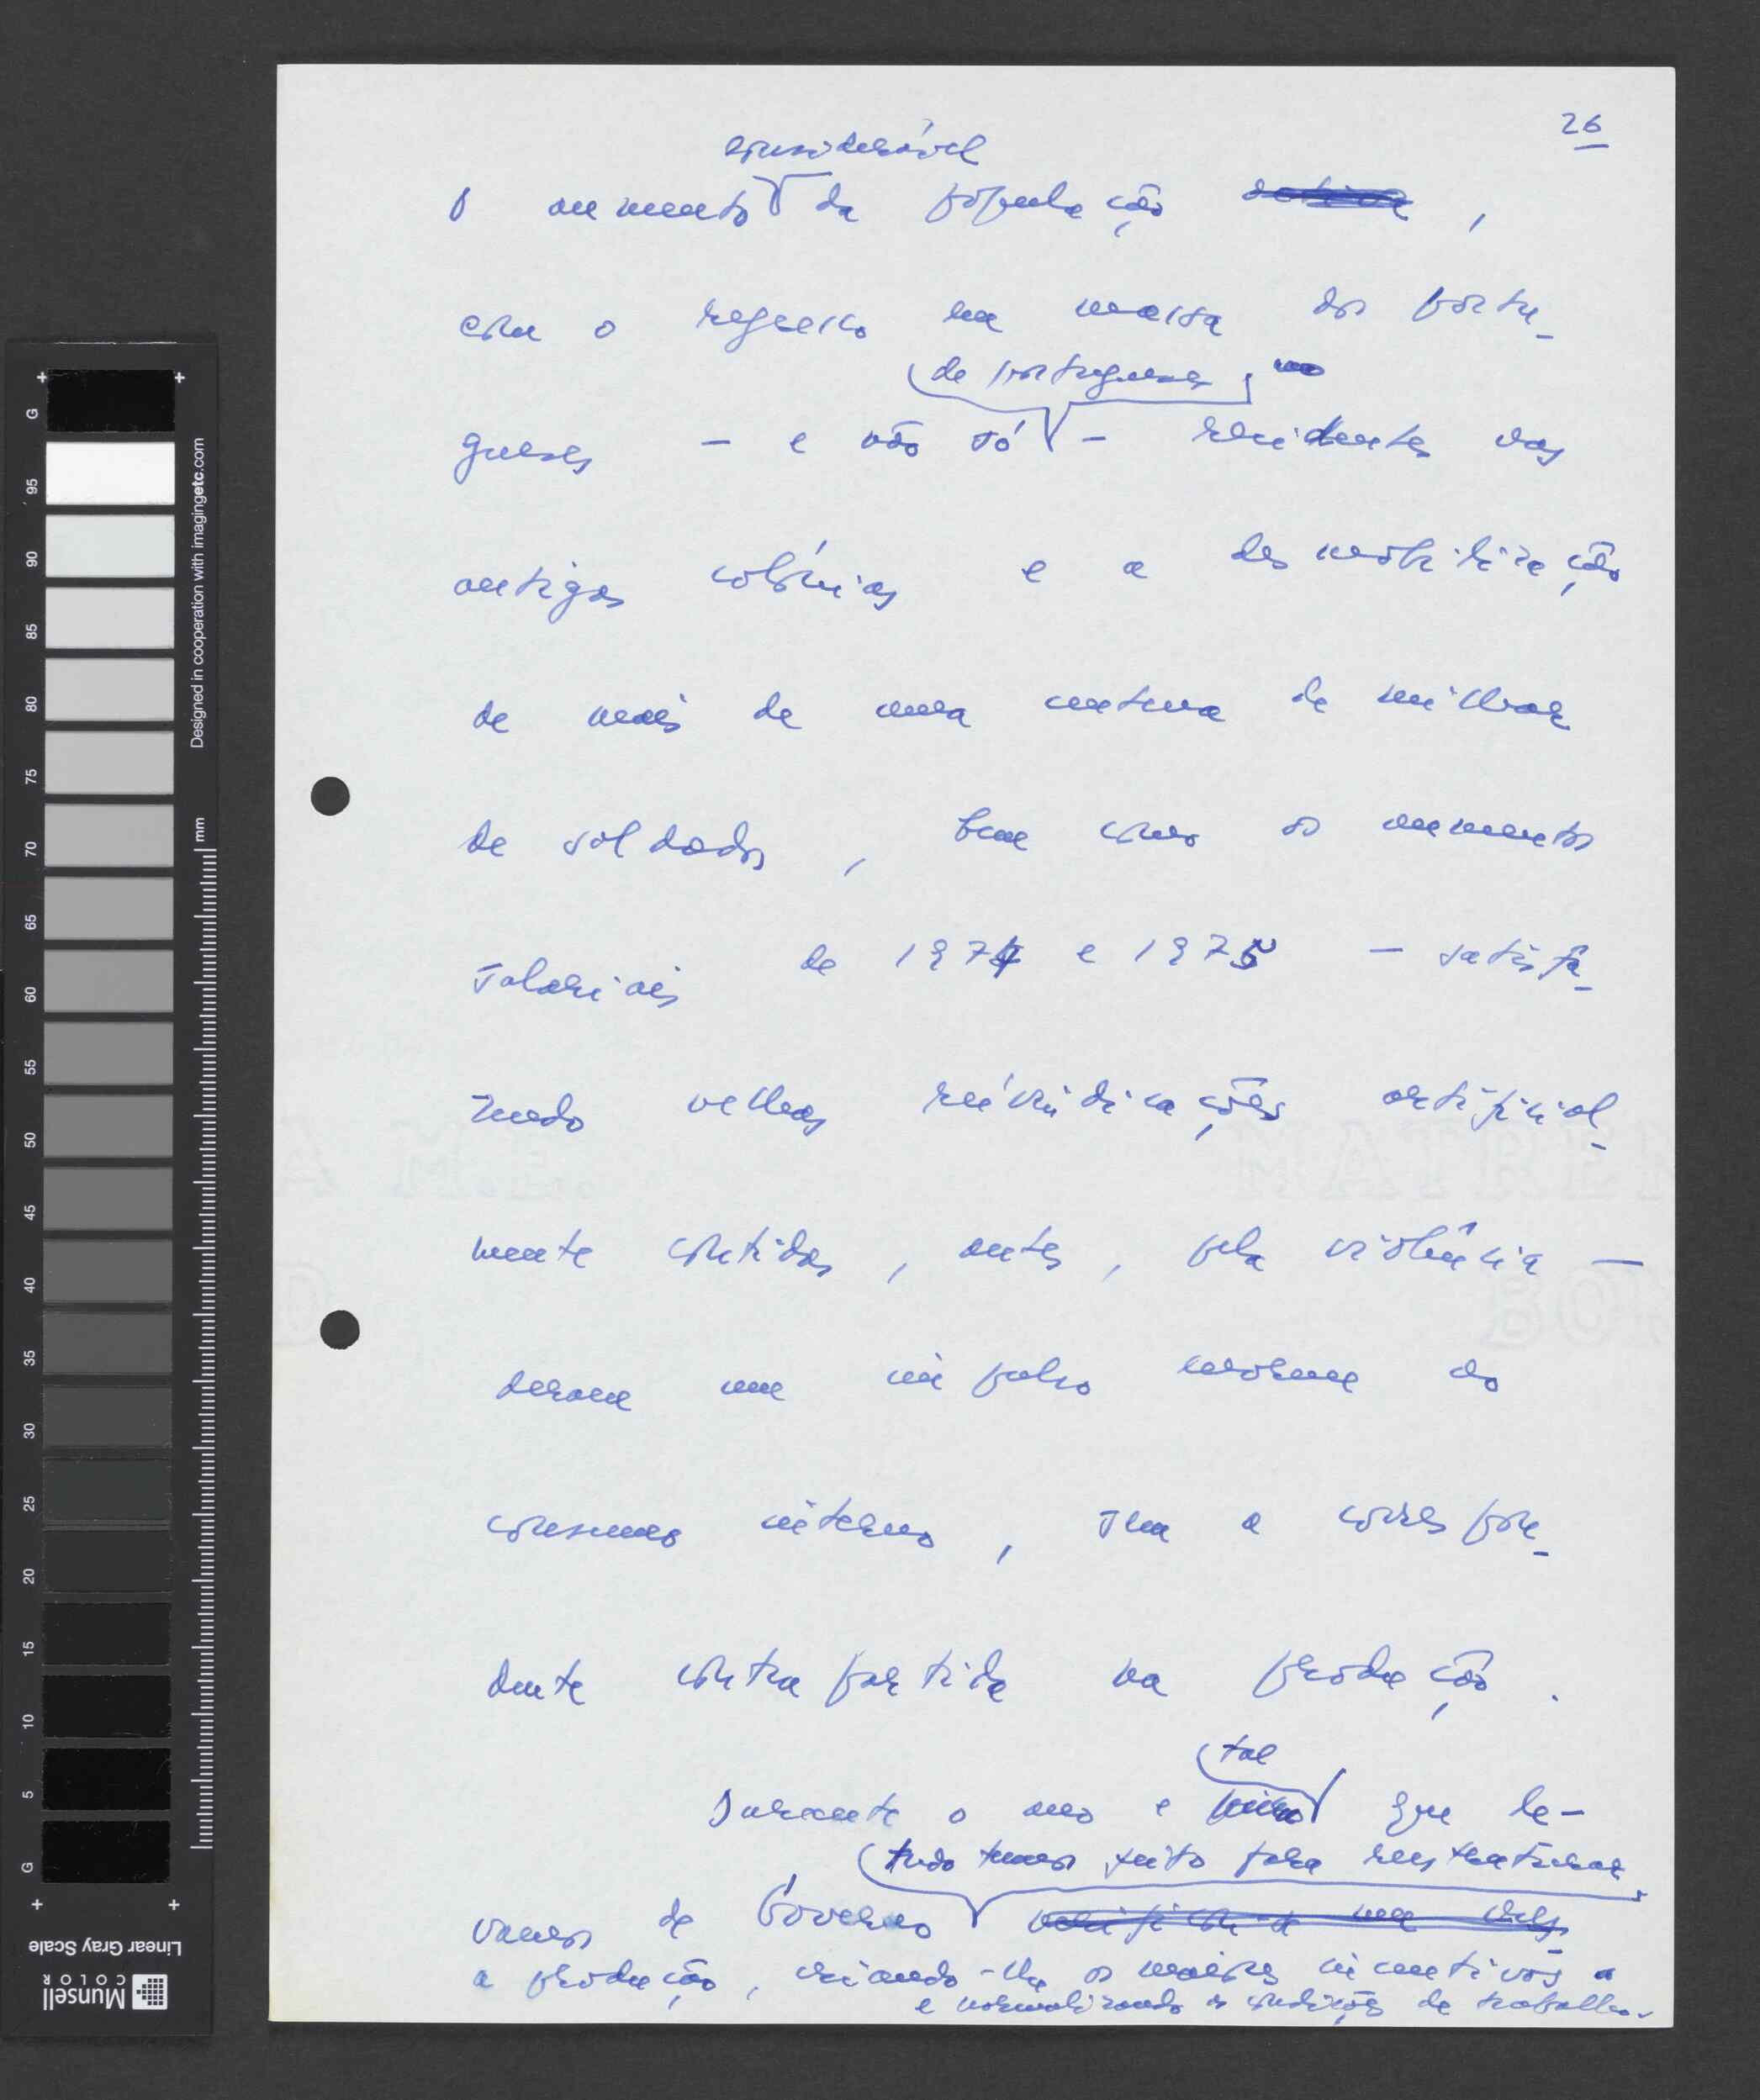 26
considerável
O aumento da população activa ,
com o regresso em massa dos portu-
de portugueses
gueses — e não só — residentes nas
antigas colónias e a desmobilização
de mais de uma centena de milhar
de soldados , bem como os aumentos
salariais de 1974 e 1975 — satisfa-
zendo velhas reivindicações artificial-
mente contidas , antes , pela violência —
deram um impulso enorme ao
consumo interno , sem a correspon-
dente contrapartida na produção .
tal
Durante o ano e que le-
tudo temos feito para reestruturar
vamos de Governo
a produção , criando-lhe os maiores incentivos
e normalizando as condições de trabalho.
Designed in cooperation with imagingetc.com
mm
G
95
90
85
80
75
70
65
60
55
50
45
40
35
30
25
20
15
10
5
G
Linear Gray Scale
Munsell
COLOR